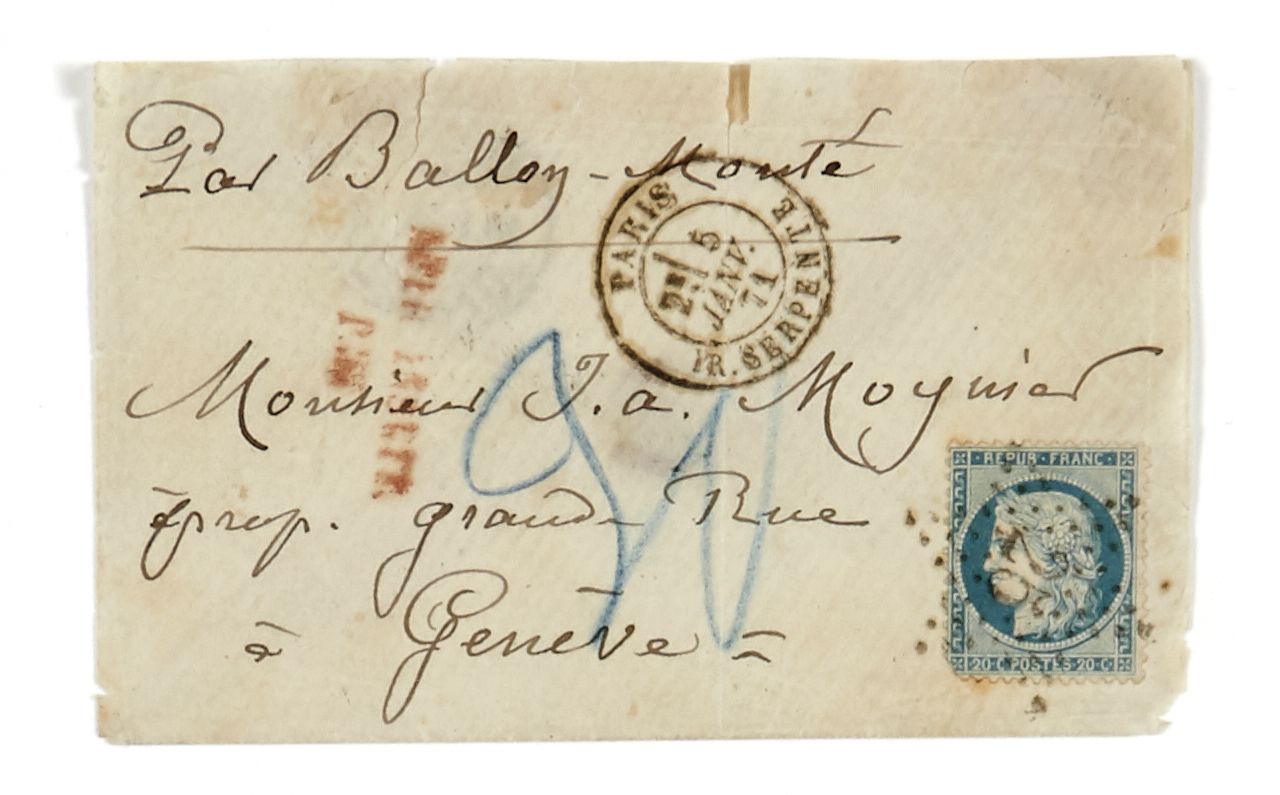 Par Ballon-Monté
PARIS
2E/ 5
JANV.
71
R. SERPENTE
Monsieur J. a. Moynier
prop. grande Rue
à Genève
REPUB·FRANC·
20·C·POSTES·20·C